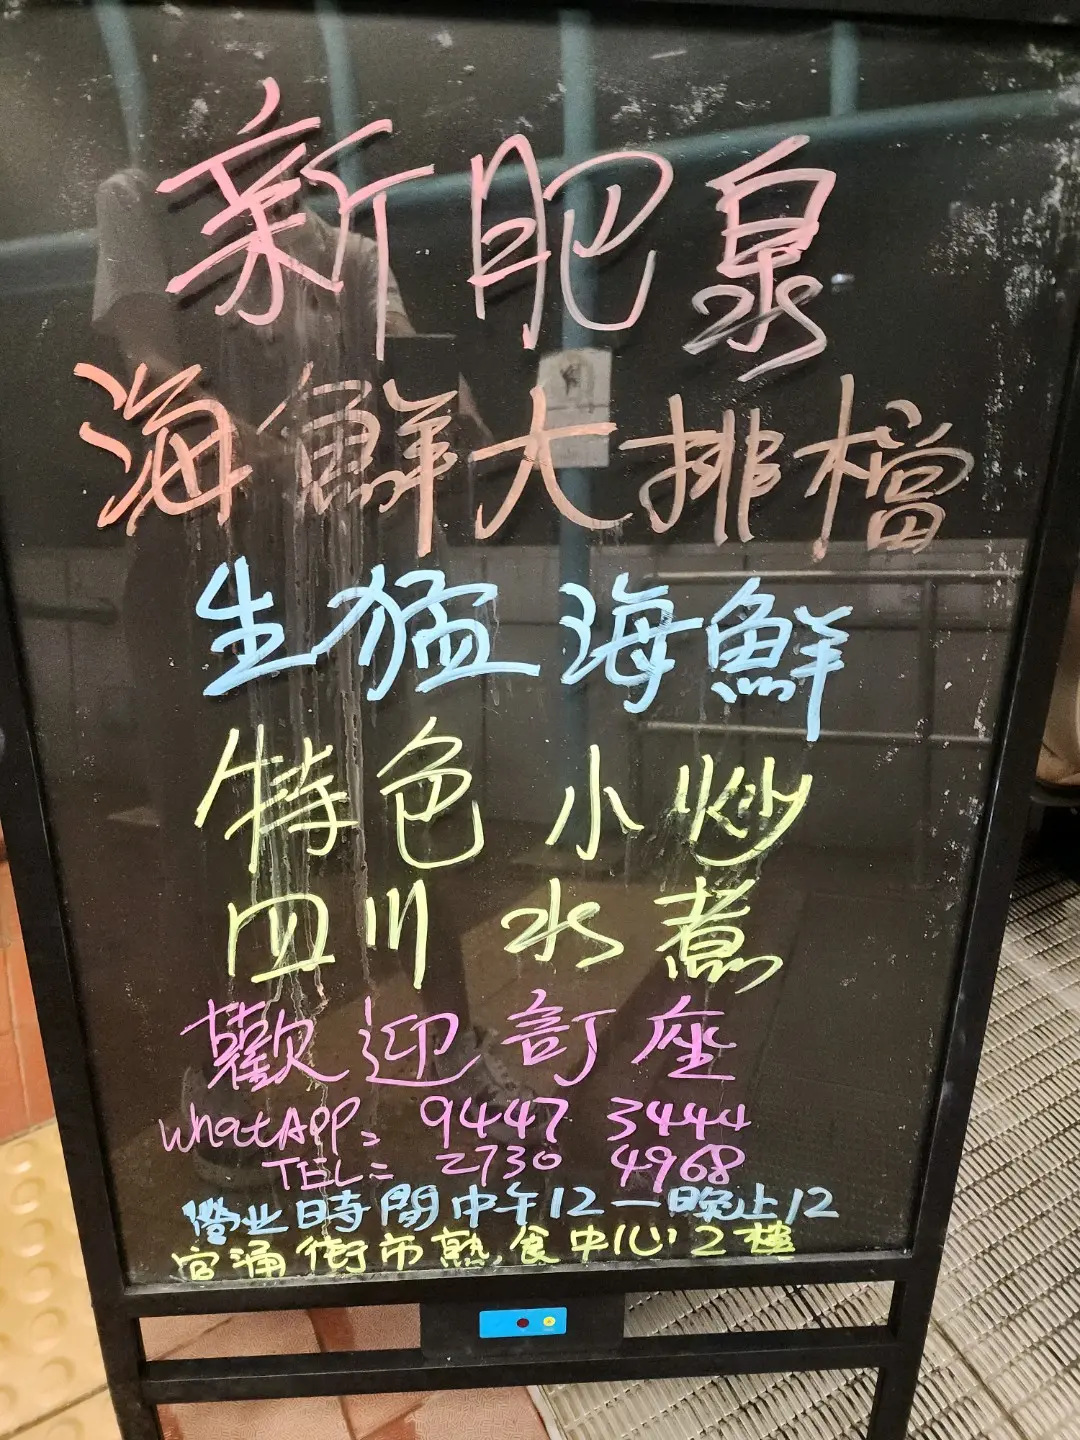 新肥泉
海鮮大排檔
生猛海鮮
特色小炒
四川水煮
歡迎訂座
WhatAPP= 9447 3444
TEL= 2730 4968
營业時間中午12一晚上12
官涌街市熟食中心2樓